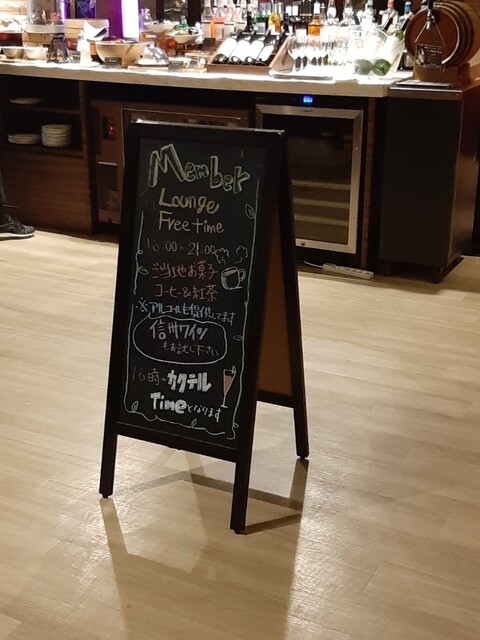 Member
Lounge
Free time
ご当地お菓子
コーヒー&紅茶
※アルコールも提供してます
信州ワイン
もお試し下さい
カクテル
Timeとなります